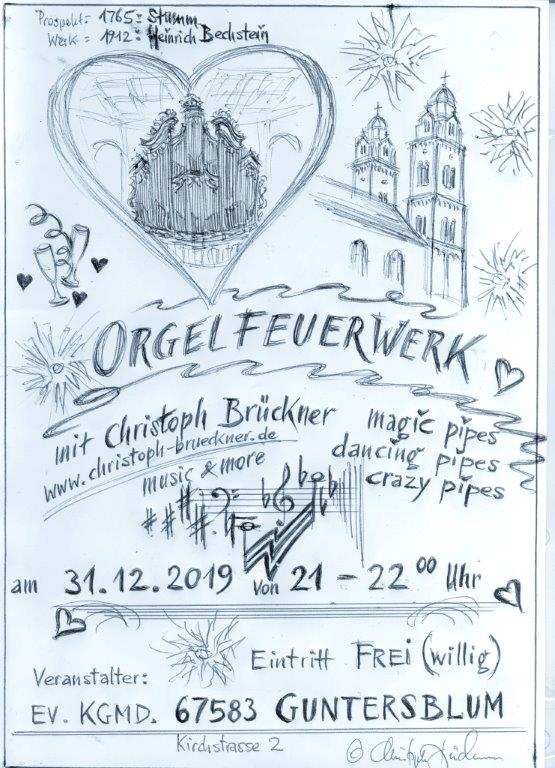 Prospekt: 1765: Stumm
Werk: 1912: Heinrich Bechstein
ORGELFEUERWERK
mit Christoph Brückner
www.christoph-brueckner.de
music & more
magic pipes
dancing pipes
crazy pipes
am 31.12.2019 von 21 - 22 00 Uhr
Eintritt FREI (willig)
Veranstalter:
EV. KGMD. 67583 GUNTERSBLUM
Kirchstrasse 2
©